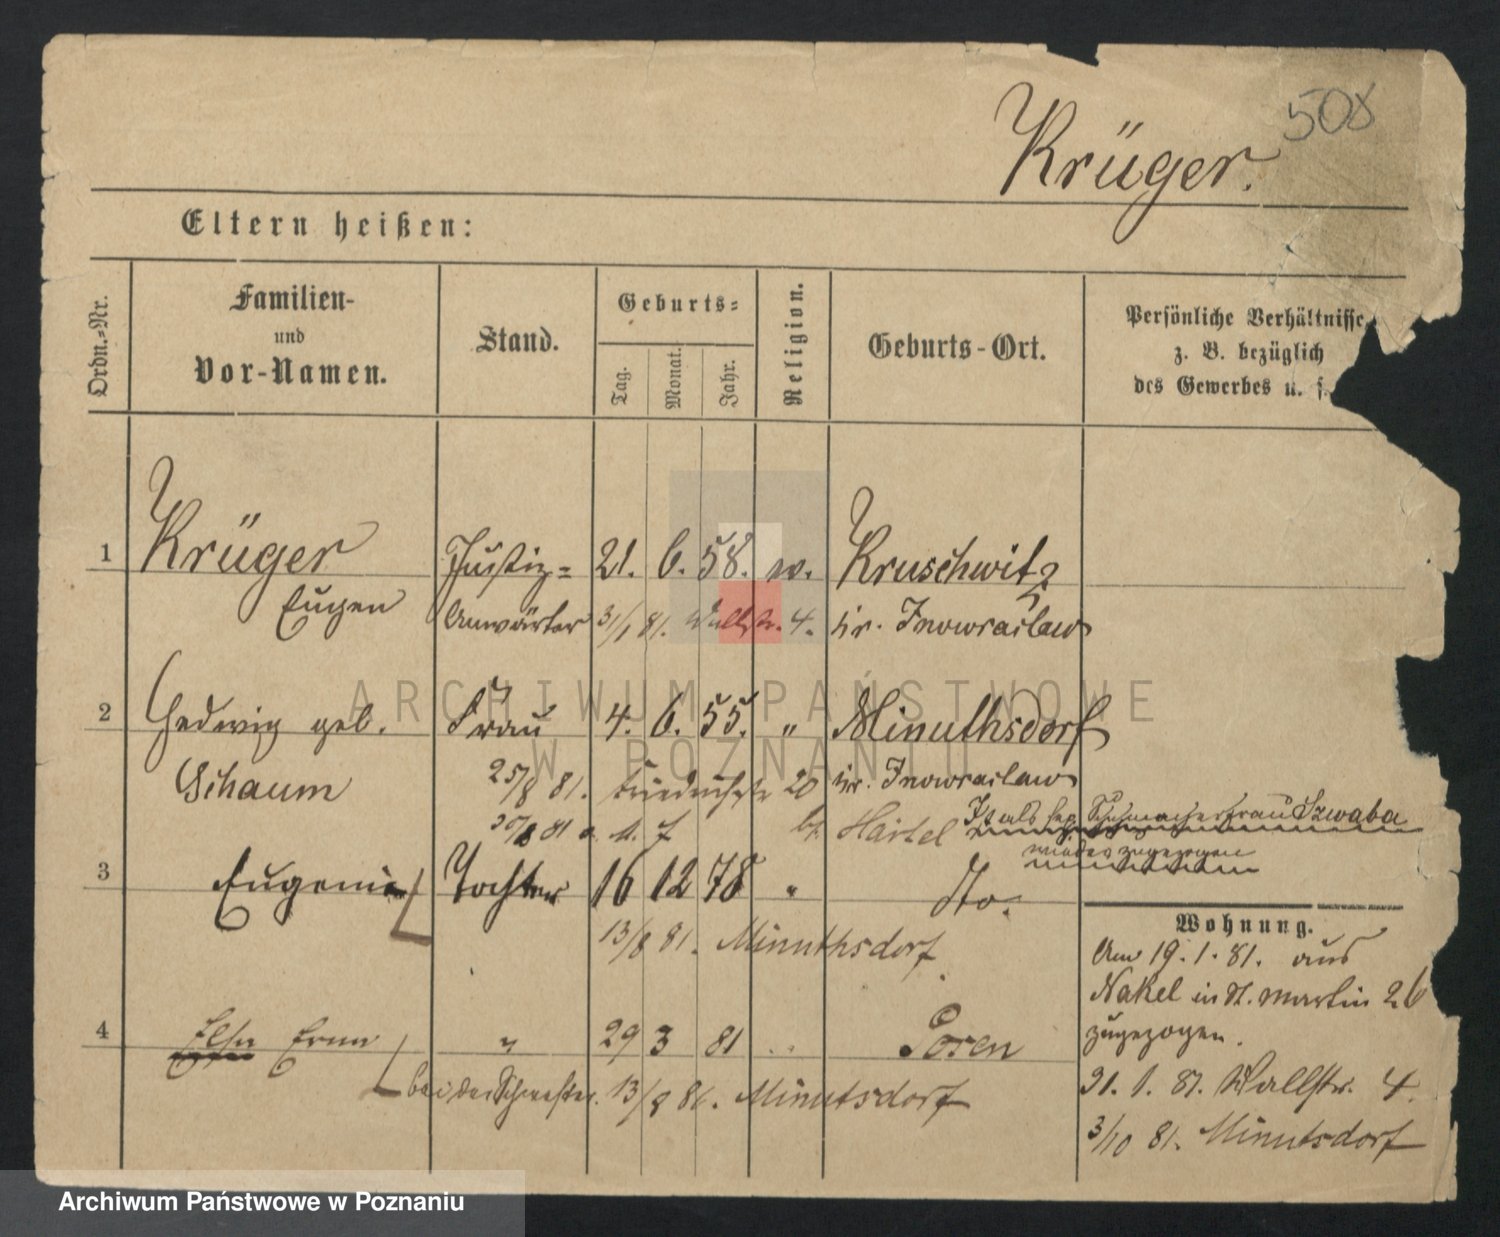 508
Krüger.
Eltern heißen:
Ordn.-Nr.
Familien-
und
Vor-Namen.
Stand.
Geburts-
Tag.
Monat.
Jahr.
Religion.
Geburts-Ort.
Persönliche Verhältnisse
z. B. bezüglich
des Gewerbes u. s.
1 Krüger Justiz= 21. 6. 58. w. Kruschwitz
Eugen Anwärter 31/1 81. Wallstr. 4. Kr. Inowraclaw
2 Hedwig geb. Frau 4. 6. 55. " Minuthsdorf
Schaum 25/8 81. 20 Kr. Inowraclaw
81 Härtel Ist als Frau Szwaba
wieder zugezogen
3 Eugenie Tochter 16 12 78 " dto.
13/8 81. Minuthsdorf
Wohnung.
Am 19.1.81. aus
Nakel in St. Martin 26
zugezogen.
4 Erna " 29 3 81 Posen
bei der Schwester. 13/8 81. Minutsdorf
31. 1. 81. Wallstr. 4.
3/10 81. Minutsdorf
ARCHIWUM PAŃSTWOWE
W POZNANIU
Archiwum Państwowe w Poznaniu